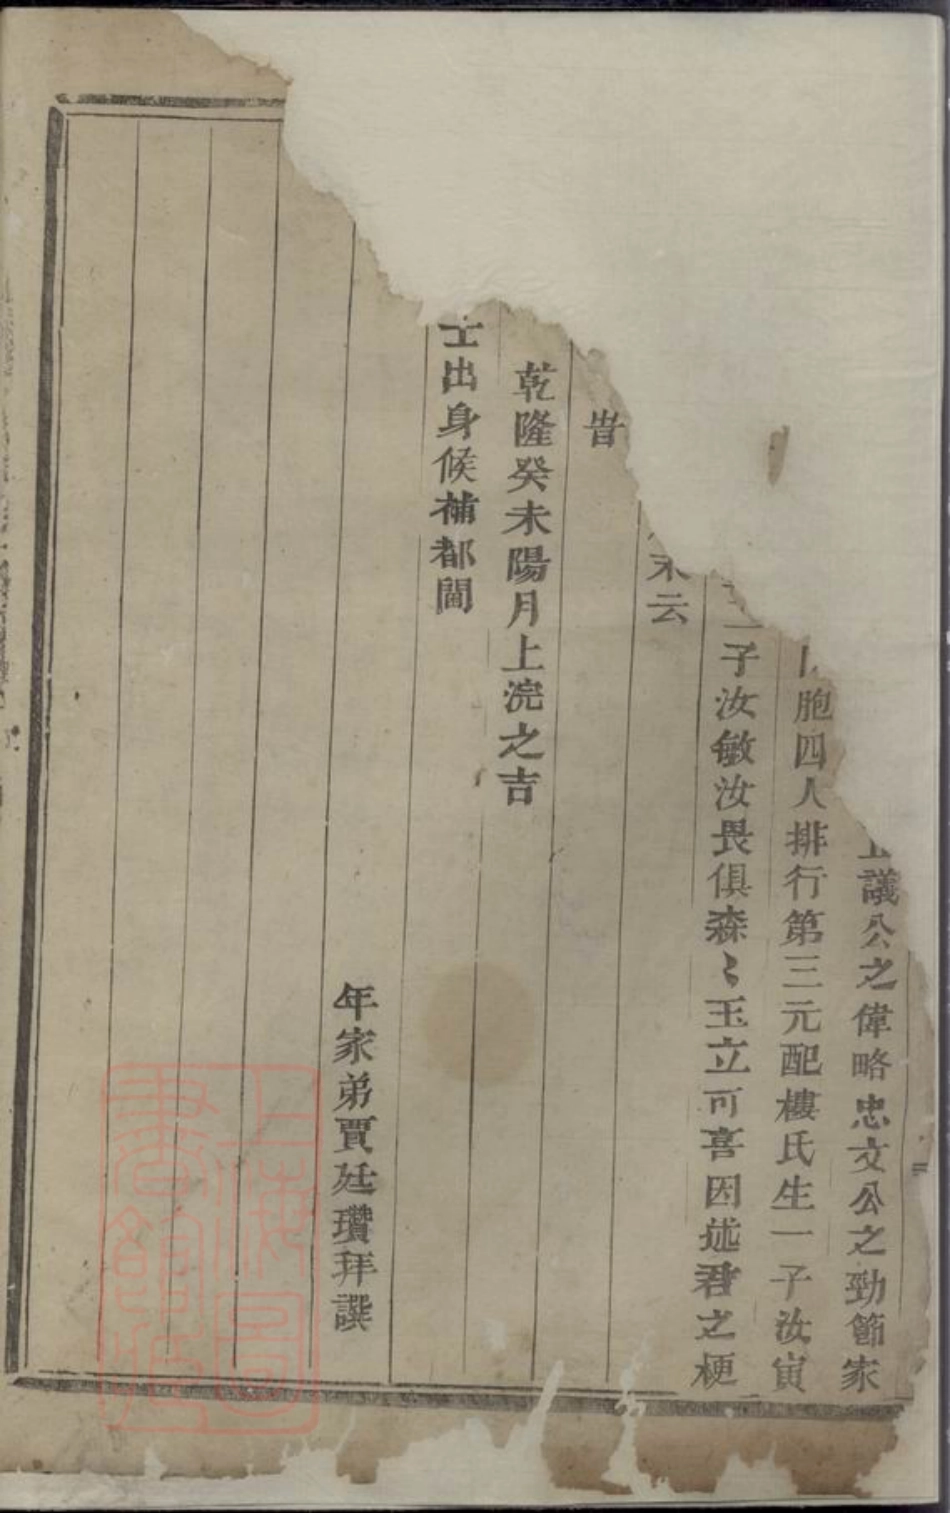 議公之偉略忠文公之勁節家
胞四人排行第三元配樓氏生一子汝寅
二子汝敏汝畏俱森〻玉立可喜因述君之梗
末云
旹
乾隆癸未陽月上浣之吉
士出身候補都閫
年家弟賈廷瓚拜譔
上海圖書館藏